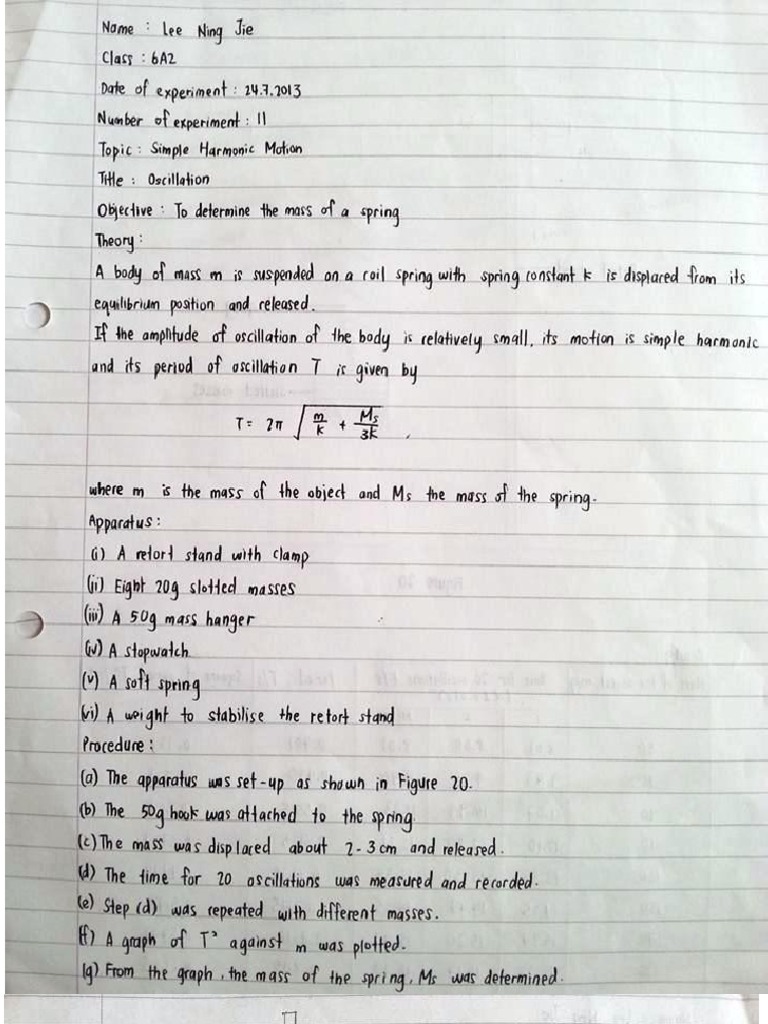 Name : Lee Ning Jie
Class : 6A2
Date of experiment : 24.7.2013
Number of experiment : 11
Topic : Simple Harmonic Motion
Title : Oscillation
Objective : To determine the mass of a spring
Theory :
A body of mass m is suspended on a coil spring with spring constant k is displaced from its
equilibrium position and released.
If the amplitude of oscillation of the body is relatively small, its motion is simple harmonic
and its period of oscillation T is given by
T = 2π √(m/k + Ms/3k) ,
where m is the mass of the object and Ms the mass of the spring.
Apparatus :
(i) A retort stand with clamp
(ii) Eight 20g slotted masses
(iii) A 50g mass hanger
(iv) A stopwatch
(v) A soft spring
(vi) A weight to stabilise the retort stand
Procedure :
(a) The apparatus was set-up as shown in Figure 20.
(b) The 50g hook was attached to the spring
(c) The mass was displaced about 2-3cm and released.
(d) The time for 20 oscillations was measured and recorded.
(e) Step (d) was repeated with different masses.
(f) A graph of T² against m was plotted.
(g) From the graph, the mass of the spring, Ms was determined.